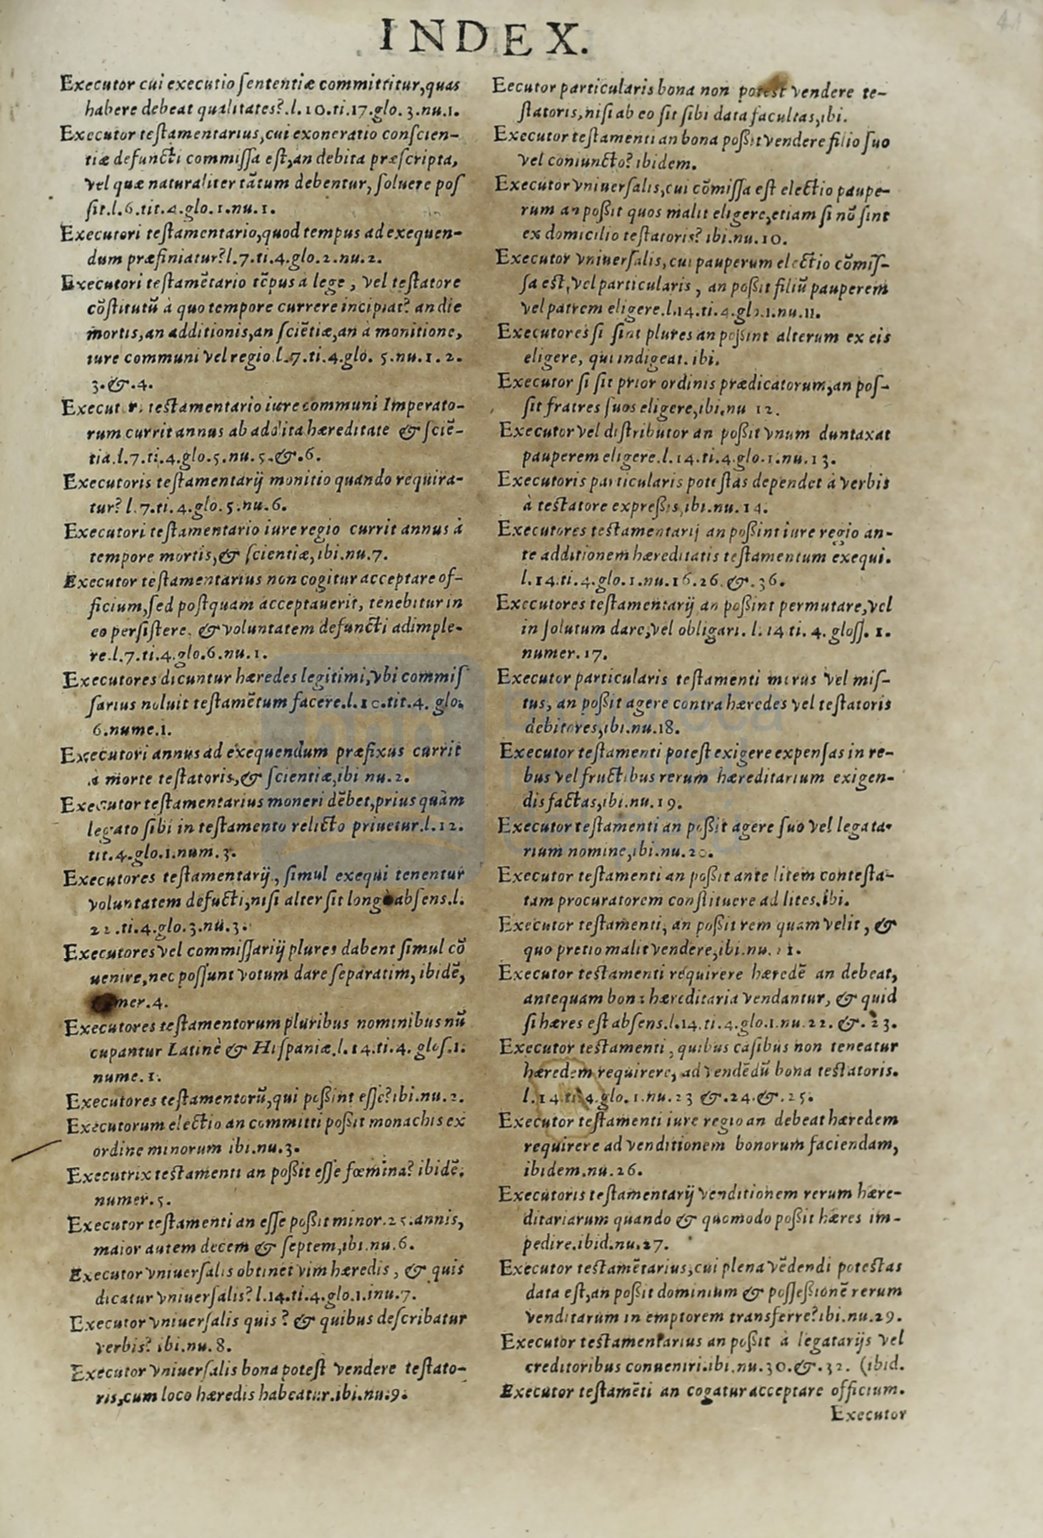 INDEX.
Executor cui executio sententiæ committitur, quas
habere debeat qualitates? l.10.ti.17.glo.3.nu.1.
Executor testamentarius, cui exoneratio conscien-
tiæ defuncti commissa est, an debita præscripta,
vel quæ naturaliter tãtum debentur, soluere pos
sit.l.6.tit.4.glo.1.nu.1.
Executori testamentario, quod tempus ad exequen-
dum præfiniatur? l.7.ti.4.glo.2.nu.2.
Executori testamẽtario tẽpus a lege, vel testatore
cõstitutũ à quo tempore currere incipiat? an die
mortis, an additionis, an sciẽtiæ, an à monitione,
iure communi vel regio.l.7.ti.4.glo. 5.nu.1.2.
3.&.4.
testamentario iure communi Imperato-
rum currit annus ab adita hæreditate & sciẽ-
tia.l.7.ti.4.glo.5.nu.5.&.6.
Executoris testamentarij monitio quando requira-
tur? l.7.ti.4.glo.5.nu.6.
Executori testamentario iure regio currit annus à
tempore mortis, & scientiæ, ibi.nu.7.
Executor testamentarius non cogitur acceptare of-
ficium, sed postquam acceptauerit, tenebitur in
eo persistere, & voluntatem defuncti adimple-
re.l.7.ti.4.glo.6.nu.1.
Executores dicuntur hæredes legitimi, vbi commis
sarius noluit testamẽtum facere.l.10.tit.4. glo.
6.nume.1.
Executori annus ad exequendum præfixus currit
à morte testatoris, & scientiæ, ibi nu.2.
Executor testamentarius moneri dẽbet, prius quàm
legato sibi in testamento relicto priuetur.l.12.
tit.4.glo.1.num.3.
Executores testamentarij, simul exequi tenentur
voluntatem defũcti, nisi alter sit longè absens.l.
22.ti.4.glo.3.nũ.3.
Executores vel commissarij plures dabent simul cõ
uenire, nec possunt votum dare separatim, ibidẽ,
mer.4.
Executores testamentorum pluribus nominibus nũ
cupantur Latinè & Hispaniæ.l.14.ti.4. glos.1.
nume.1.
Executores testamentorũ, qui possint esse? ibi.nu.2.
Executorum electio an committi possit monachis ex
ordine minorum ibi.nu.3.
Executrix testamenti an possit esse fœmina? ibidẽ.
numer.5.
Executor testamenti an esse possit minor.25.annis,
maior autem decem & septem, ibi.nu.6.
Executor vniuersalis obtinet vim hæredis, & quis
dicatur vniuersalis? l.14.ti.4.glo.1.inu.7.
Executor vniuersalis quis? & quibus describatur
verbis? ibi nu.8.
Executor vniuersalis bona potest vendere testato-
ris, cum loco hæredis habeatur.ibi.nu.9.
Eecutor particularis bona non potest vendere te-
statoris, nisi ab eo sit sibi data facultas, ibi.
Executor testamenti an bona possit vendere filio suo
vel coniuncto? ibidem.
Executor vniuersalis, cui cõmissa est electio paupe-
rum an possit quos malit eligere, etiam si nõ sint
ex domicilio testatoris? ibi.nu.10.
Executor vniuersalis, cui pauperum electio cõmis-
sa est, vel particularis, an possit filiũ pauperem
vel patrem eligere.l.14.ti.4.glo.1.nu.11.
Executores si sint plures an possint alterum ex eis
eligere, qui indigeat. ibi.
Executor si sit prior ordinis prædicatorum, an pos-
sit fratres suos eligere, ibi.nu 12.
Executor vel distributor an possit vnum duntaxat
pauperem eligere.l.14.ti.4.glo.1.nu.13.
Executoris particularis potestas dependet à verbis
à testatore expressis, ibi.nu.14.
Executores testamentarij an possint iure regio an-
te additionem hæreditatis testamentum exequi.
l.14.ti.4.glo.1.nu.16.26.&.36.
Executores testamentarij an possint permutare, vel
in solutum dare, vel obligari. l.14 ti.4. gloss. 1.
numer.17.
Executor particularis testamenti merus vel mis-
tus, an possit agere contra hæredes vel testatoris
debitores, ibi.nu.18.
Executor testamenti potest exigere expensas in re-
bus vel fructibus rerum hæreditarium exigen-
dis factas, ibi.nu.19.
Executor testamenti an possit agere suo vel legata-
rium nomine, ibi.nu.20.
Executor testamenti an possit ante litem contesta-
tam procuratorem constituere ad lites.ibi.
Executor testamenti, an possit rem quam velit, &
quo pretio malit vendere, ibi.nu.21.
Executor testamenti requirere hæredẽ an debeat,
antequam bona hæreditaria vendantur, & quid
si hæres est absens.l.14.ti.4.glo.1.nu.22.&.23.
Executor testamenti, quibus casibus non teneatur
hæredem requirere, ad vendẽdũ bona testatoris.
l.14.ti.4.glo.1.nu.23 &.24.&.25.
Executor testamenti iure regio an debeat hæredem
requirere ad venditionem bonorum faciendam,
ibidem.nu.26.
Executoris testamentarij venditionem rerum hære-
ditariarum quando & quomodo possit hæres im-
pedire.ibid.nu.27.
Executor testamẽtarius, cui plena vẽdendi potestas
data est, an possit dominium & possessionẽ rerum
venditarum in emptorem transferre? ibi.nu.29.
Executor testamentarius an possit à legatarijs vel
creditoribus conueniri.ibi.nu.30.&.32. (ibid.
Executor testamẽti an cogatur acceptare officium.
Executor